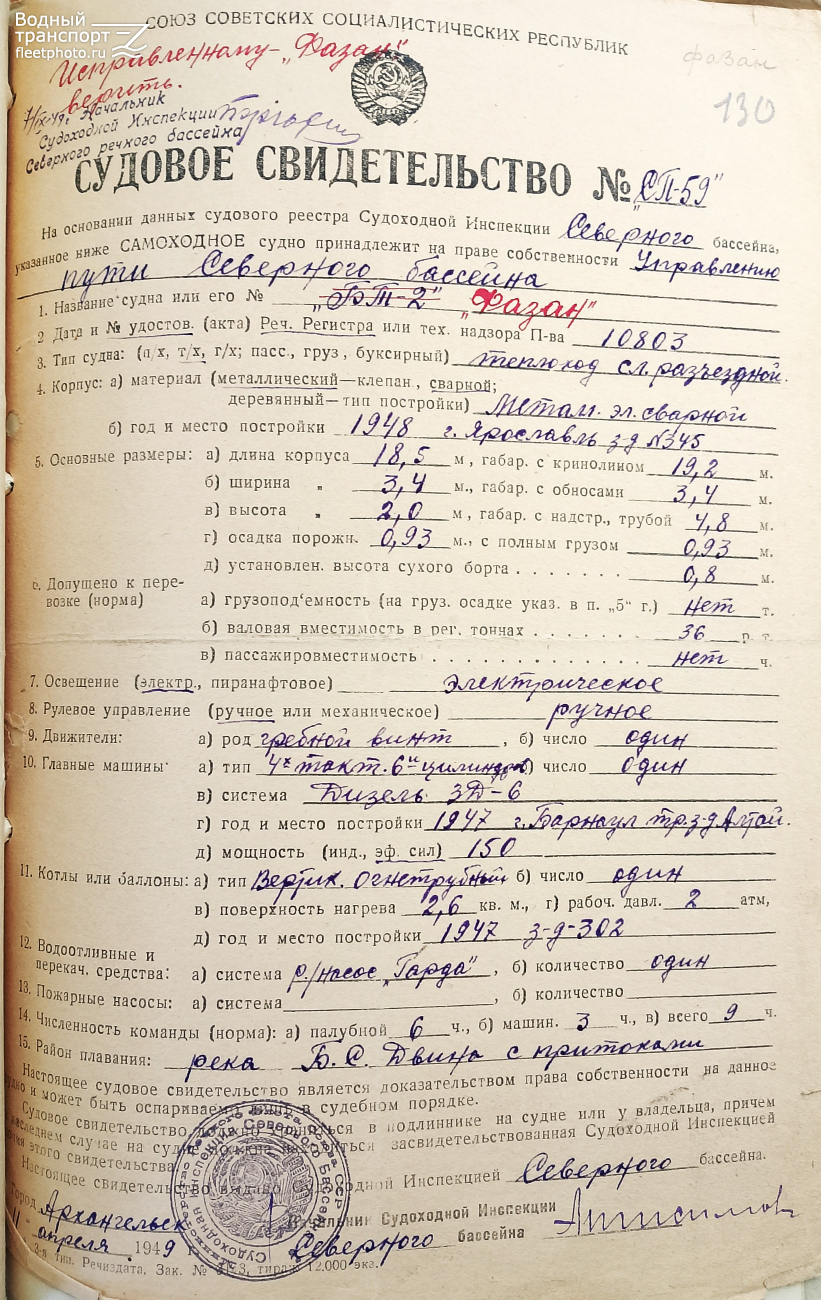 Водный
транспорт
fleetphoto.ru
СОЮЗ СОВЕТСКИХ СОЦИАЛИСТИЧЕСКИХ РЕСПУБЛИК
Исправленному - „Фазан"
верить.
фазан
130
Начальник
Судоходной Инспекции
Северного речного бассейна
СУДОВОЕ СВИДЕТЕЛЬСТВО № „СП-59"
На основании данных судового реестра Судоходной Инспекции Северного бассейна,
указанное ниже САМОХОДНОЕ судно принадлежит на праве собственности Управлению
пути Северного бассейна
1. Название судна или его № „БТ-2" „Фазан"
2 Дата и № удостов. (акта) Реч. Регистра или тех. надзора П-ва 10803
3. Тип судна: (п/х, т/х, г/х; пасс., груз, буксирный) теплоход сл. разъездной.
4. Корпус: а) материал (металлический—клепан., сварной;
деревянный—тип постройки) Металл. эл. сварной
б) год и место постройки 1948 г. Ярославль з-д №345
5. Основные размеры: а) длина корпуса 18,5 м, габар. с кринолином 19,2 м.
б) ширина „ 3,4 м., габар. с обносами 3,4 м.
в) высота „ 2,0 м, габар. с надстр., трубой 4,8 м.
г) осадка порожн. 0,93 м., с полным грузом 0,93 м.
д) установлен. высота сухого борта . . . . . . . 0,8 м.
6. Допущено к пере-
возке (норма) а) грузопод'емность (на груз. осадке указ. в п. „5" г.) нет т.
б) валовая вместимость в рег. тоннах . . . . . . . 36 р. т.
в) пассажировместимость . . . . . . . . . . . . нет ч.
7. Освещение (электр., пиранафтовое) Электрическое
8. Рулевое управление (ручное или механическое) ручное
9. Движители: а) род гребной винт , б) число один
10. Главные машины: а) тип 4х такт. 6и цилиндров б) число один
в) система Дизель 3Д-6
г) год и место постройки 1947 г. Барнаул тр. з-д Алтай.
д) мощность (инд., эф. сил) 150
11. Котлы или баллоны: а) тип Вертик. Огнетрубный б) число один
в) поверхность нагрева 2,6 кв. м., г) рабоч. давл. 2 атм,
д) год и место постройки 1947 з-д-302
12. Водоотливные и
перекач. средства: а) система р/насос „Гарда" , б) количество один
13. Пожарные насосы: а) система , б) количество
14. Численность команды (норма): а) палубной 6 ч., б) машин. 3 ч., в) всего 9 ч.
15. Район плавания: река Б. С. Двина с притоками
Настоящее судовое свидетельство является доказательством права собственности на данное
судно и может быть оспариваемо лишь в судебном порядке.
Судовое свидетельство должно храниться в подлиннике на судне или у владельца, причем
последнем случае на судне должна находиться засвидетельствованная Судоходной Инспекцией
этого свидетельства.
Настоящее свидетельство выдано Судоходной Инспекцией Северного бассейна.
Город Архангельск
Начальник Судоходной Инспекции
11 - апреля 1949
Северного бассейна Анисимов
3-я тип. Речиздата. Зак. № тираж 12.000 экз.
Судоходная Инспекция Северного Бассейна